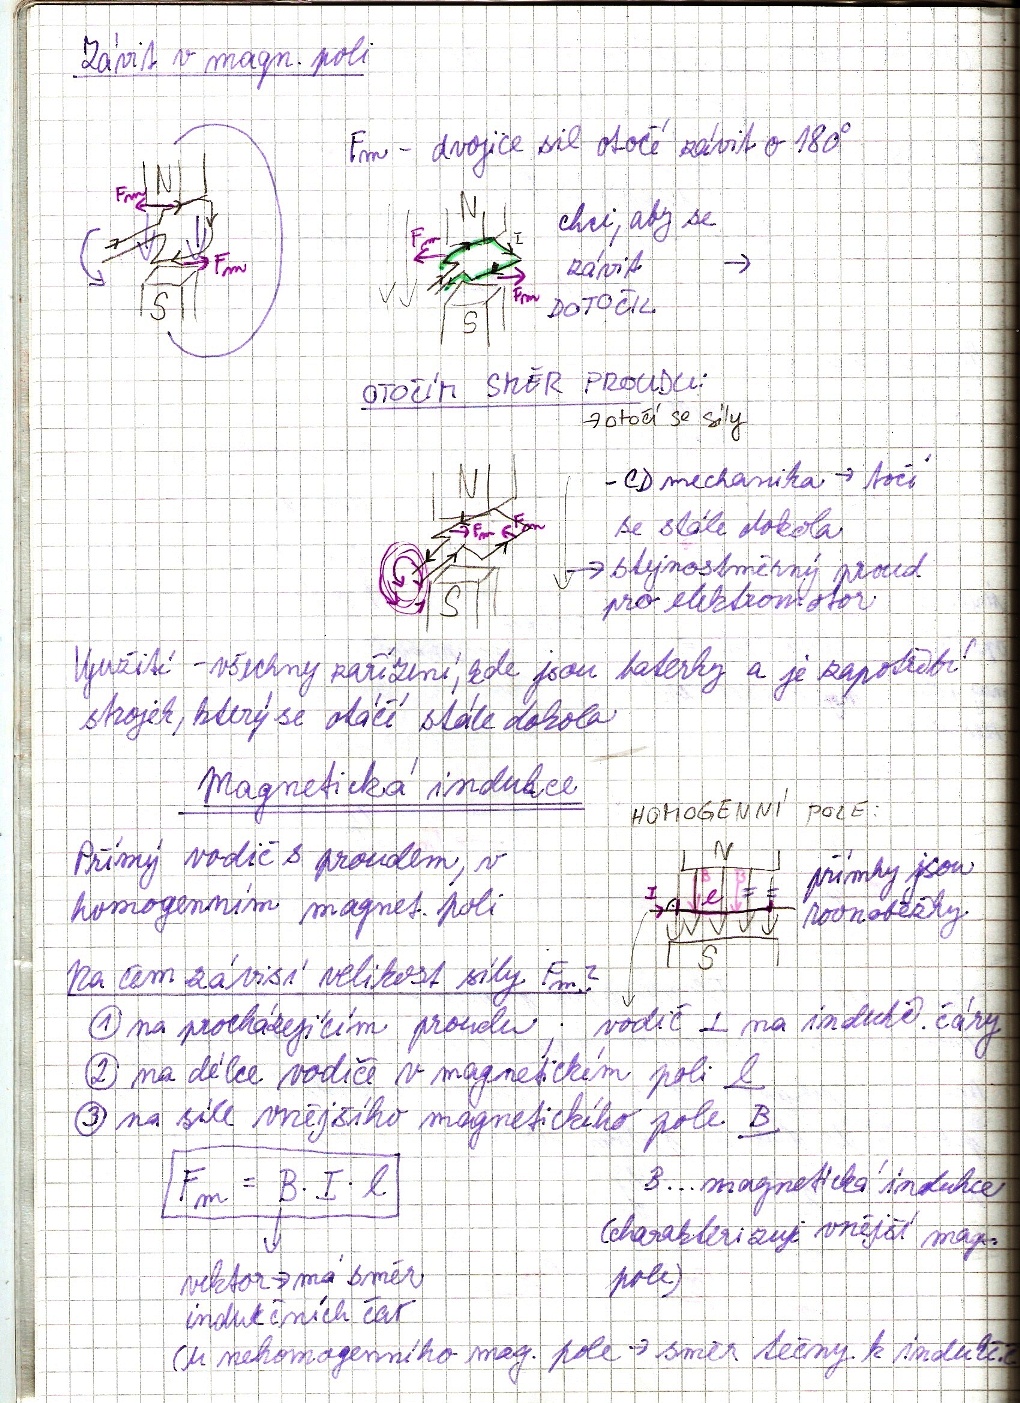 Závit v magn. poli
Fm - dvojice sil otočí závit o 180°
N
Fm
Fm
S
N
I
Fm
Fm
S
chci, aby se
závit →
DOTOČIL
OTOČÍM SMĚR PROUDU:
→ otočí se síly
N
Fm
Fm
S
- CD mechanika → točí
se stále dokola
→ stejnosměrný proud
pro elektromotor
Využití - všechny zařízení, kde jsou baterky a je zapotřebí
strojek, který se otáčí stále dokola
Magnetická indukce
HOMOGENNÍ POLE:
Přímý vodič s proudem, v
homogenním magnet. poli
N
B B
I l
S
přímky jsou
rovnoběžky
Na čem závisí velikost síly Fm?
① na procházejícím proudu
vodič ⊥ na indukč. čáry
② na délce vodiče v magnetickém poli l
③ na síle vnějšího magnetického pole B
Fm = B · I · l
B...magnetická indukce
(charakterizuje vnější mag.
pole)
vektor → má směr
indukčních čar
(u nehomogenního mag. pole → směr tečny k indukč.